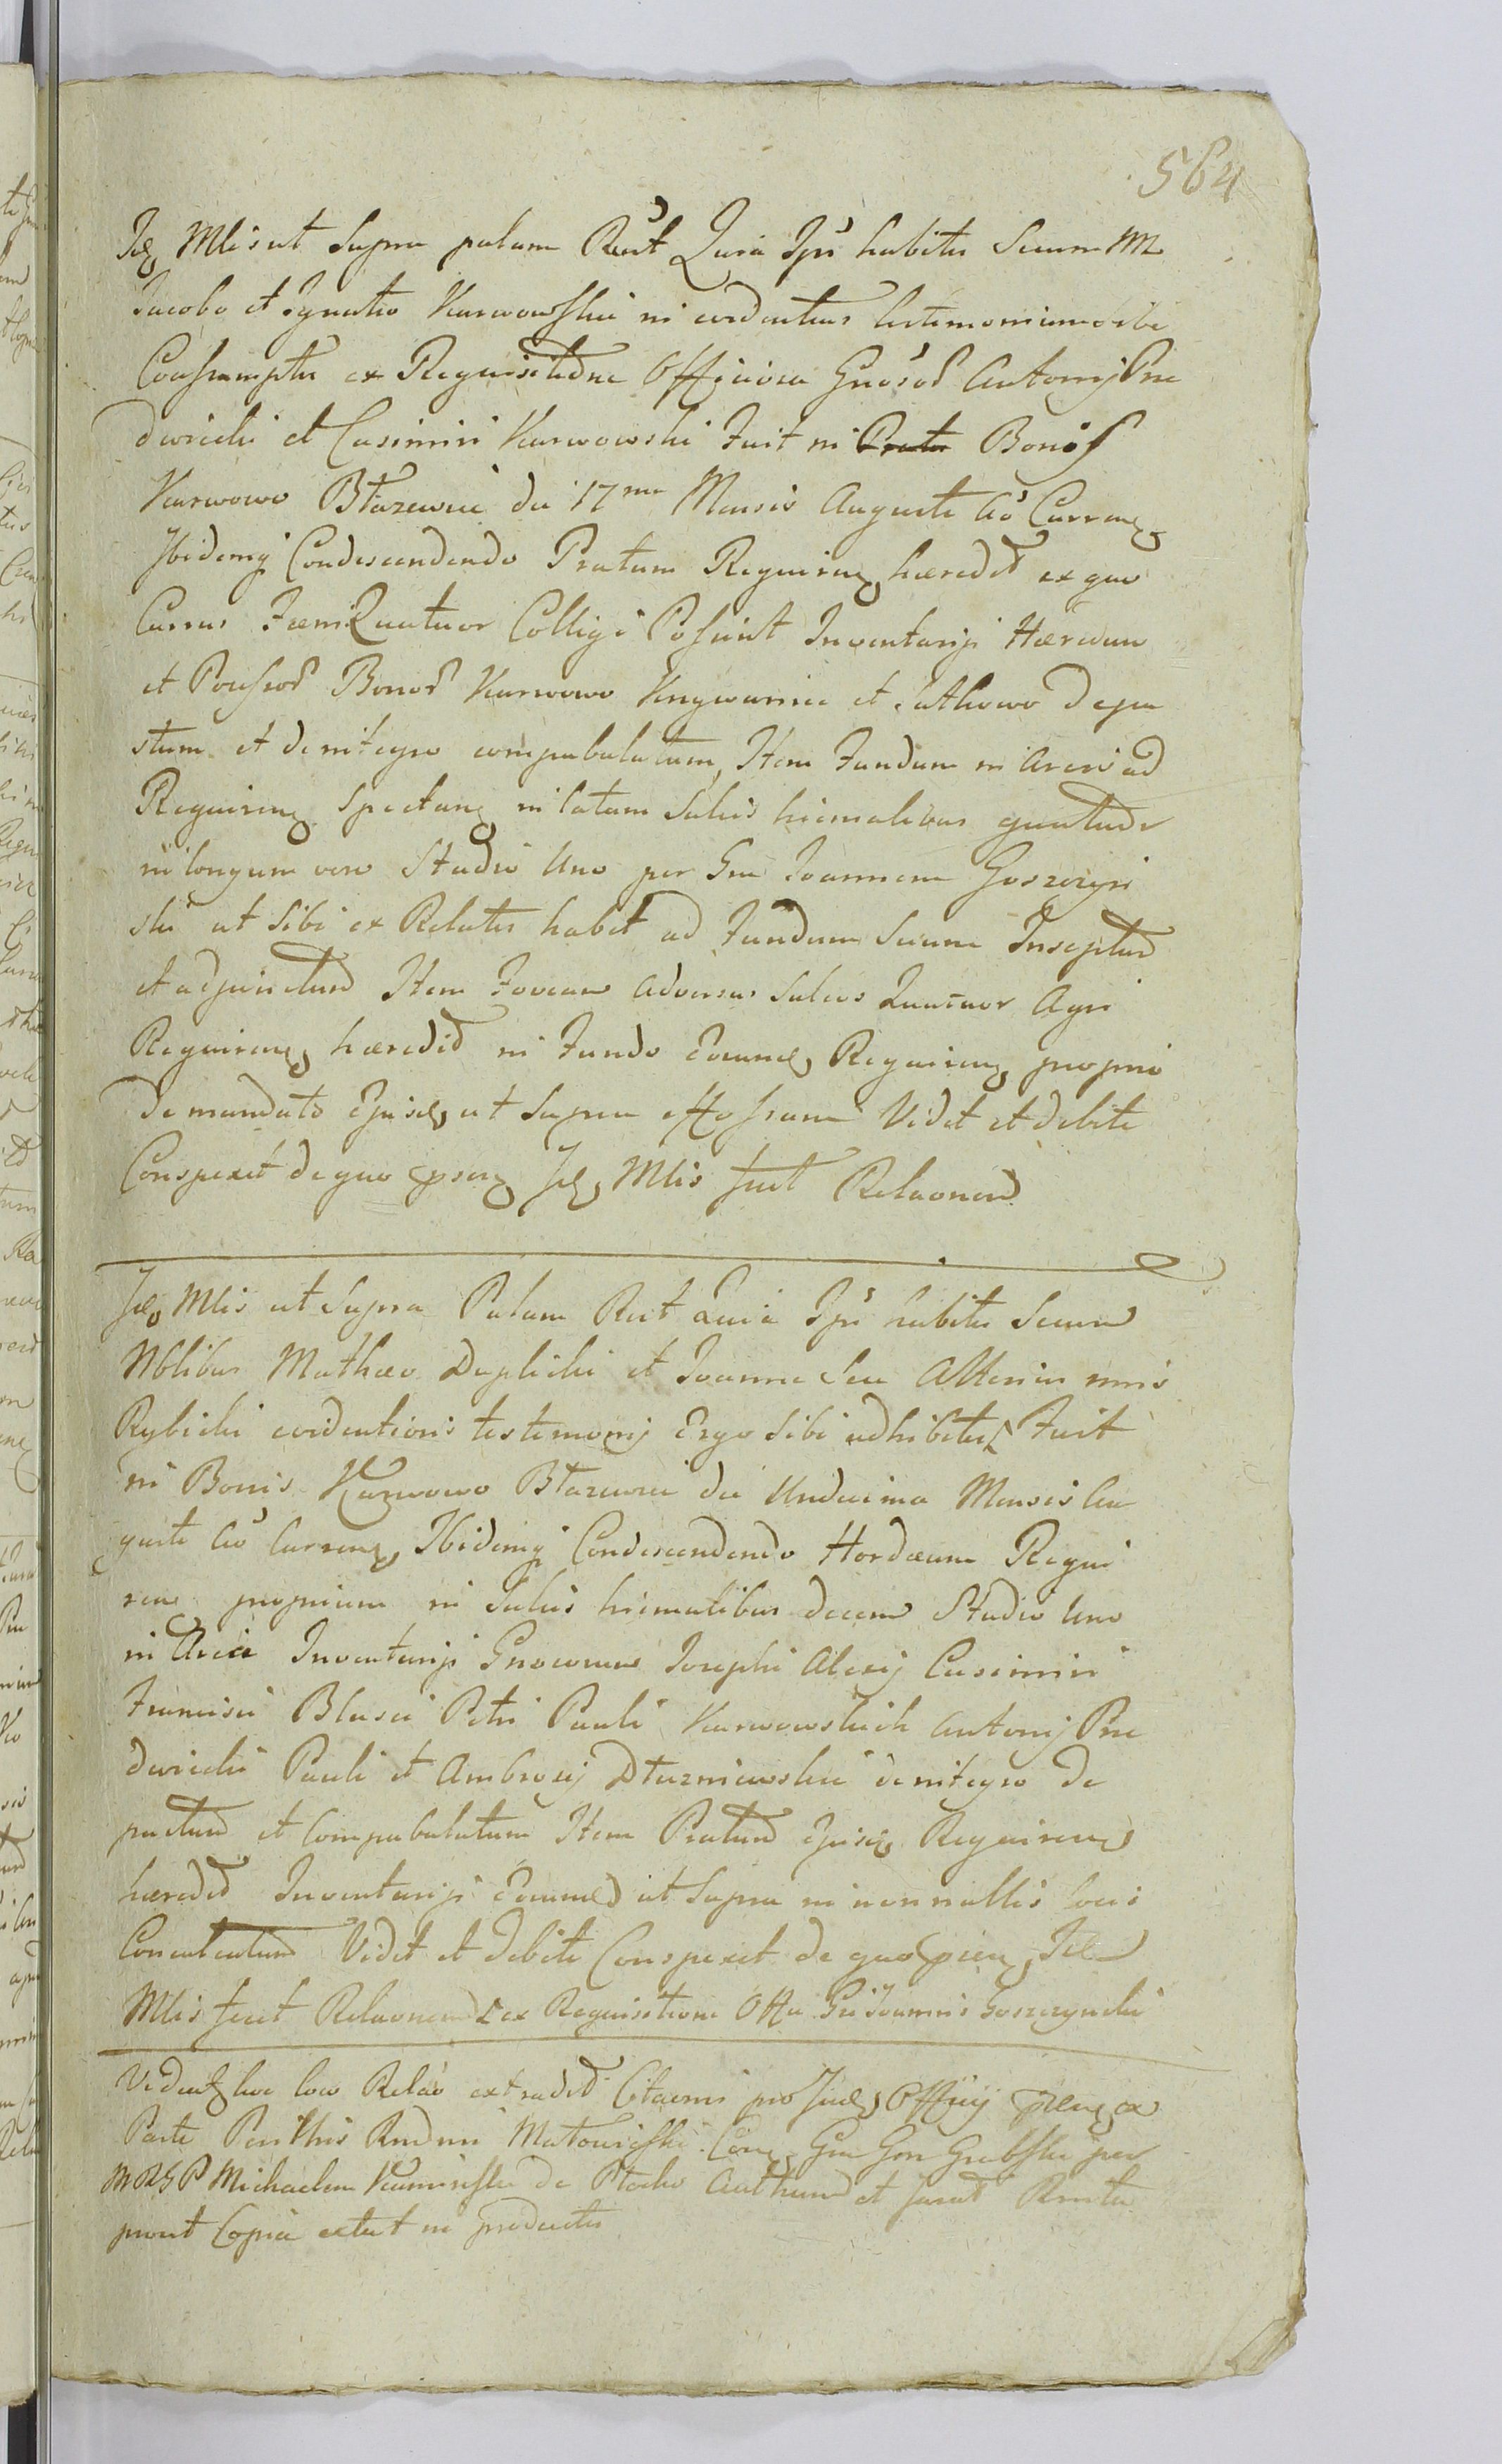 564
Ide Mlis ut Supra palam Rect Quia Ipse habitis Secum M
Jacobo et Ignatio Karwowskie in evidentius testimonium sibi
Consumptis ex Requisitione Officiosa Gnosor Antonij Prze
dwiecki et Casimiri Karwowski Fuit in Bonis
Karwowo Błazewie die 17ma Mensis Augusti Ao Curren
Ibidemq Condescendendo Pratum Requiren hæredit ex quo
Currus Fæni Quatuor Colligi Possunt Inventarijs Hæredum
et Possessor Bonor Karwowo Krzywanice et Łatkowo depa
stum et de integro compabulatum, Item Fundum in Area ad
Requiren Spectan in latum Sulcis hiemalibus quatuor
in longum vero Stadio Uno per Gnu Joannem Goszczyn
ski ut Sibi ex Relatis habet ad Fundum Suum Inseptum
et adjunctum Item Foveam adversus Sulcos Quatuor Agri
Requiren hæredit in Fundo Requiren proprio
de mandato Ejusd ut Supra effossam Vidit et debite
Conspexit de quo psen Ide Mlis fecit Relaonem
Ide Mlis ut Supra Palam Rect Quia Ipse habitis Secum
Nblibus Mathæo Duplicki et Joanne Seu nnis
Rybicki evidentioris testimonij Ergo Sibi adhibitis Fuit
in Bonis Karwowo Błazewie die Undecima Mensis Au
gusti Ao Curren, Ibidemq Condescendendo Hordæum Requi
ren proprium in Sulcis hiemalibus decem Stadio Uno
in Area Inventarijs Gnosorum Josephi Alexij Casimiri
Francisci Blasii Petri Pauli Karwowskich Antonij Prze
dwiecki Pauli et Ambrosij Dłuzniewskie de integro de
pactum et Compabulatum Item Pratum Ejusd Requiren
hæredit Inventarijs ut Supra in nonnullis locis
Conculcatum Vidit et debite Conspexit de quo psen Ide
Mlis fecit Relaonem ex Requisitione Offa Gni Joannis Goszczynski
Vident hoc loco Relao extradit Citaonis pro Offij psen ex
Parte Rndmi Gni Grabski per
Michaelem Kaminski de Płocko et Jurat
prout Copia extat in productis